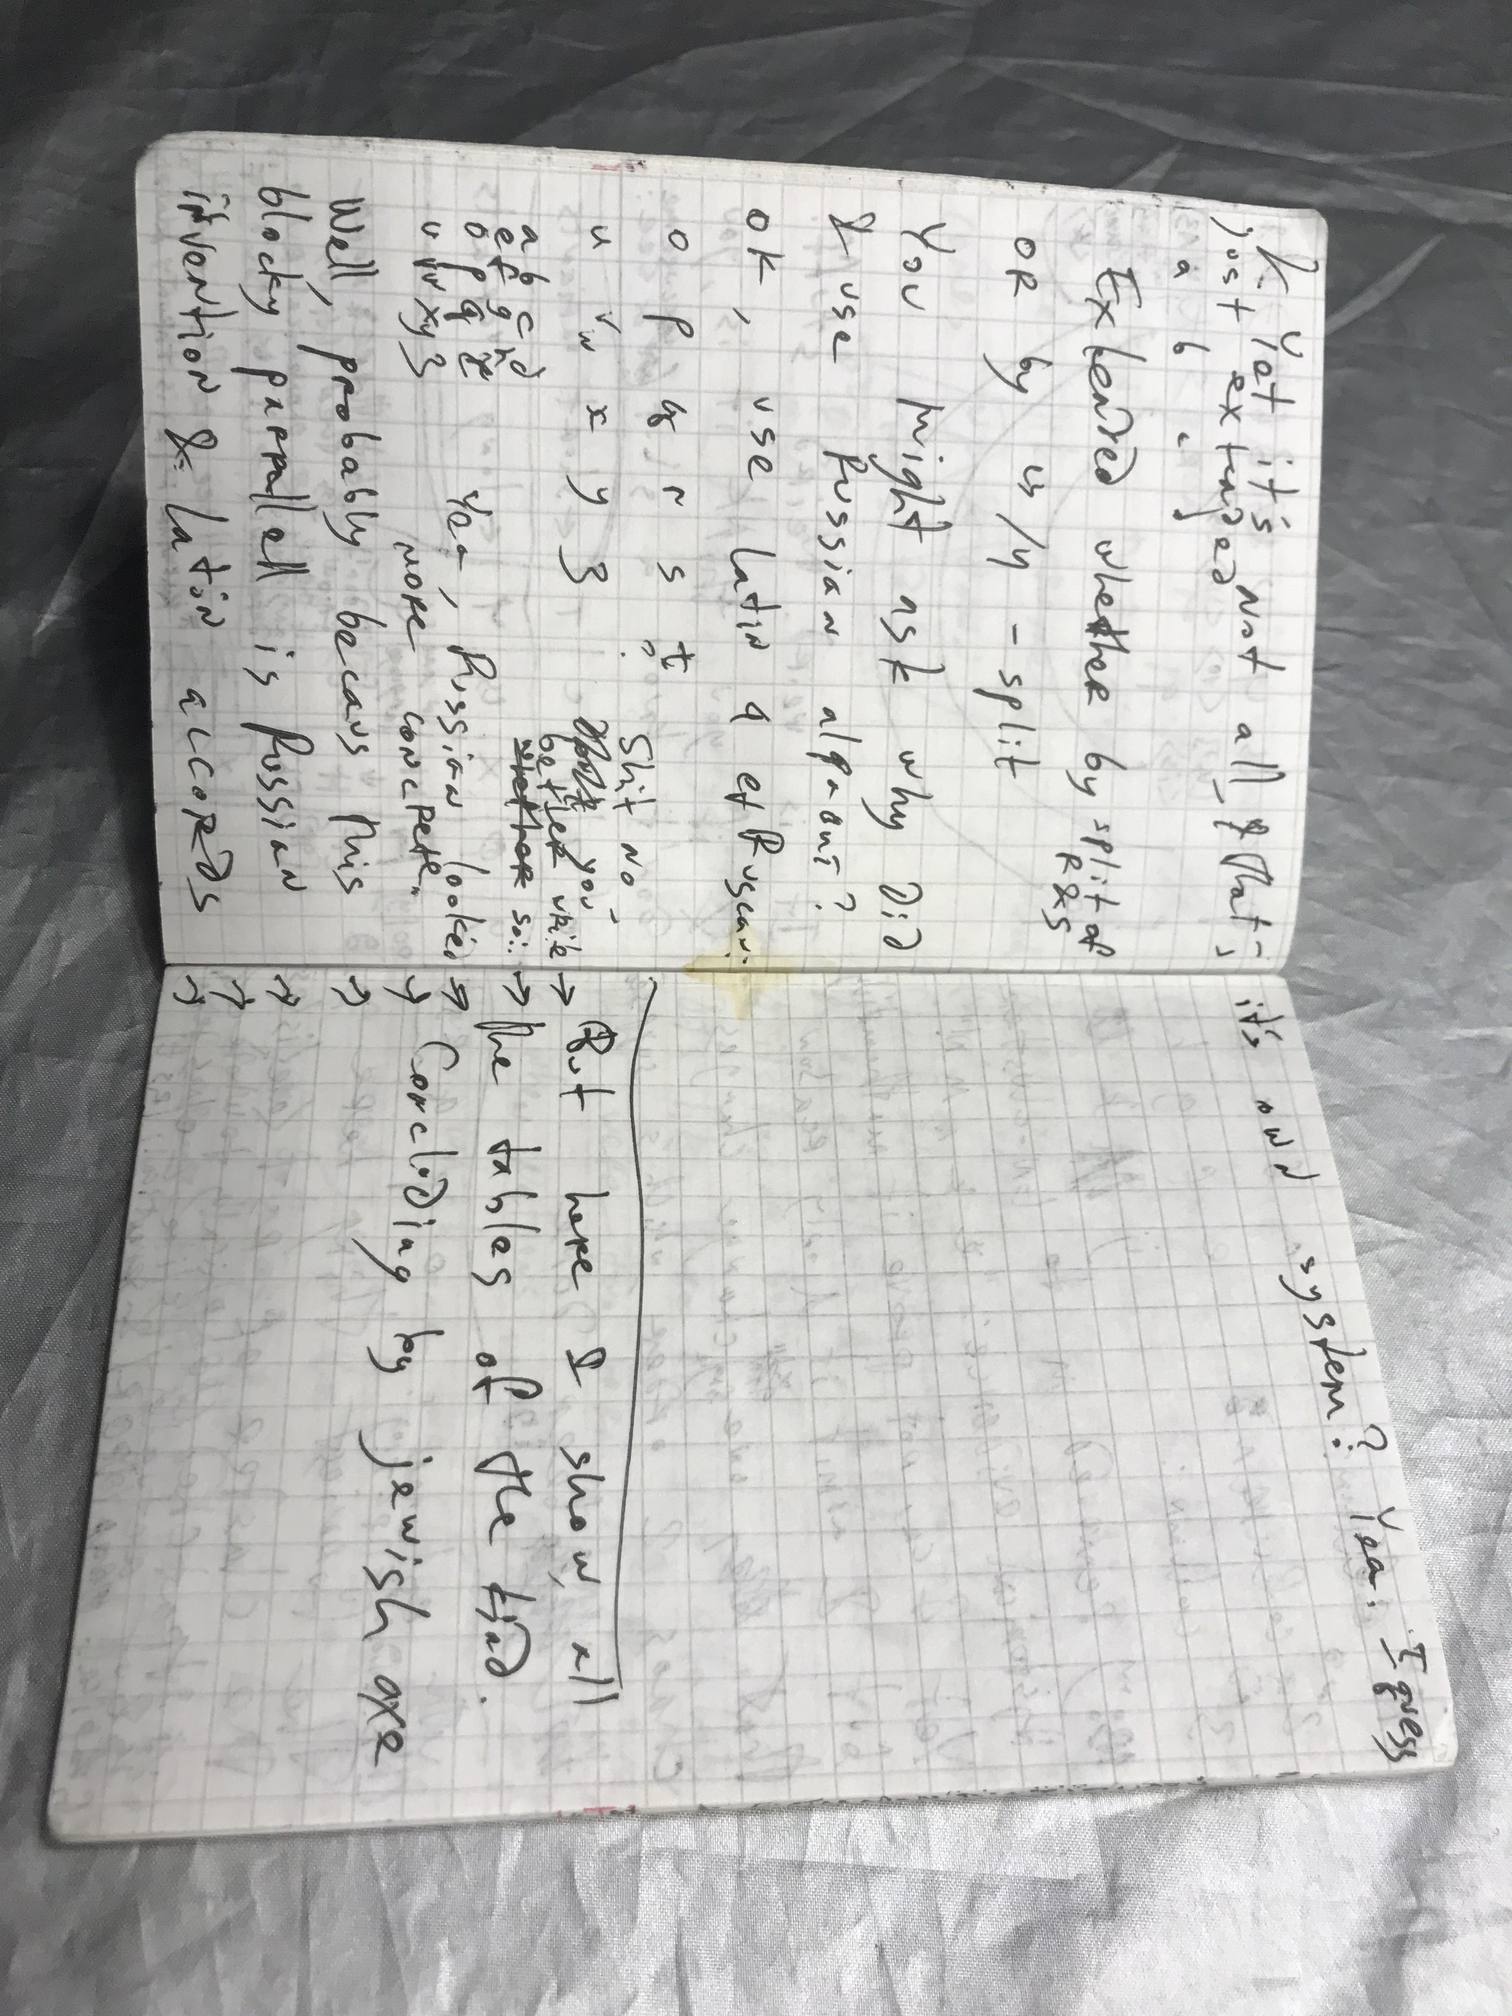 K. Yot it's not all, & that's
just extended
a b
Extended whether by split of
R & S
OR by u/y - split
You might ask why did
I use Russian
OK, use latin
o p q r s t
u v/w x y z
Shit no
better
a b c d
e f g h d
o p q r
u v/w x y z
Yea, Russian looked
more concrete.
Well, probably becaus this
blocky parrallell is Russian
invention & latin accords
it's own system? Yea. I guess
→ But here I show, all
→ The tables of the kind.
→
→ Concluding by jewish axe
→
→
→
→